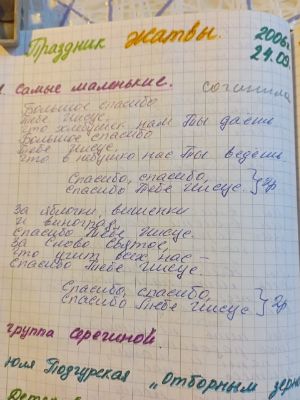 Праздник жатвы.
2006г
24.09
1. Самые маленькие.
сочинила
Большое спасибо
Тебе Иисус,
что хлебушек нам Ты даёшь
Большое спасибо
Тебе Иисус,
что в небушко нас Ты ведёшь.
Спасибо, спасибо,
спасибо Тебе Иисус } 2р
За яблочки, вишенки
и виноград,
спасибо Тебе Иисус
За слово святое,
что учит всех нас –
спасибо Тебе Иисус.
Спасибо, спасибо,
спасибо Тебе Иисус } 2р
группа Серегиной
Юля Подгурская „Отборным зерн